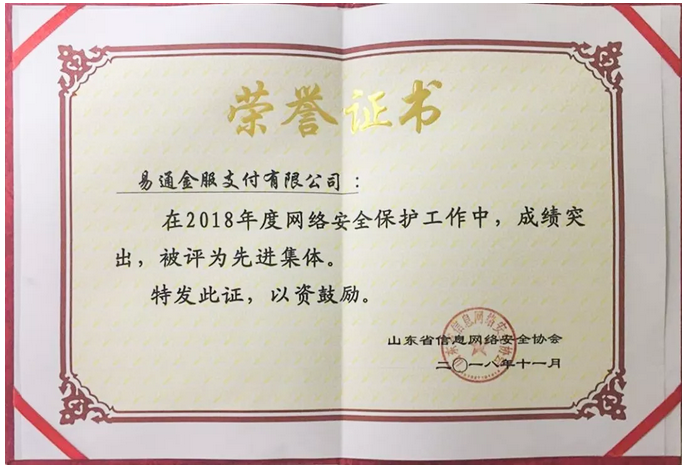 荣誉证书
易通金服支付有限公司：
在2018年度网络安全保护工作中，成绩突
出，被评为先进集体。
特发此证，以资鼓励。
山东省信息网络安全协会
二〇一八年十一月